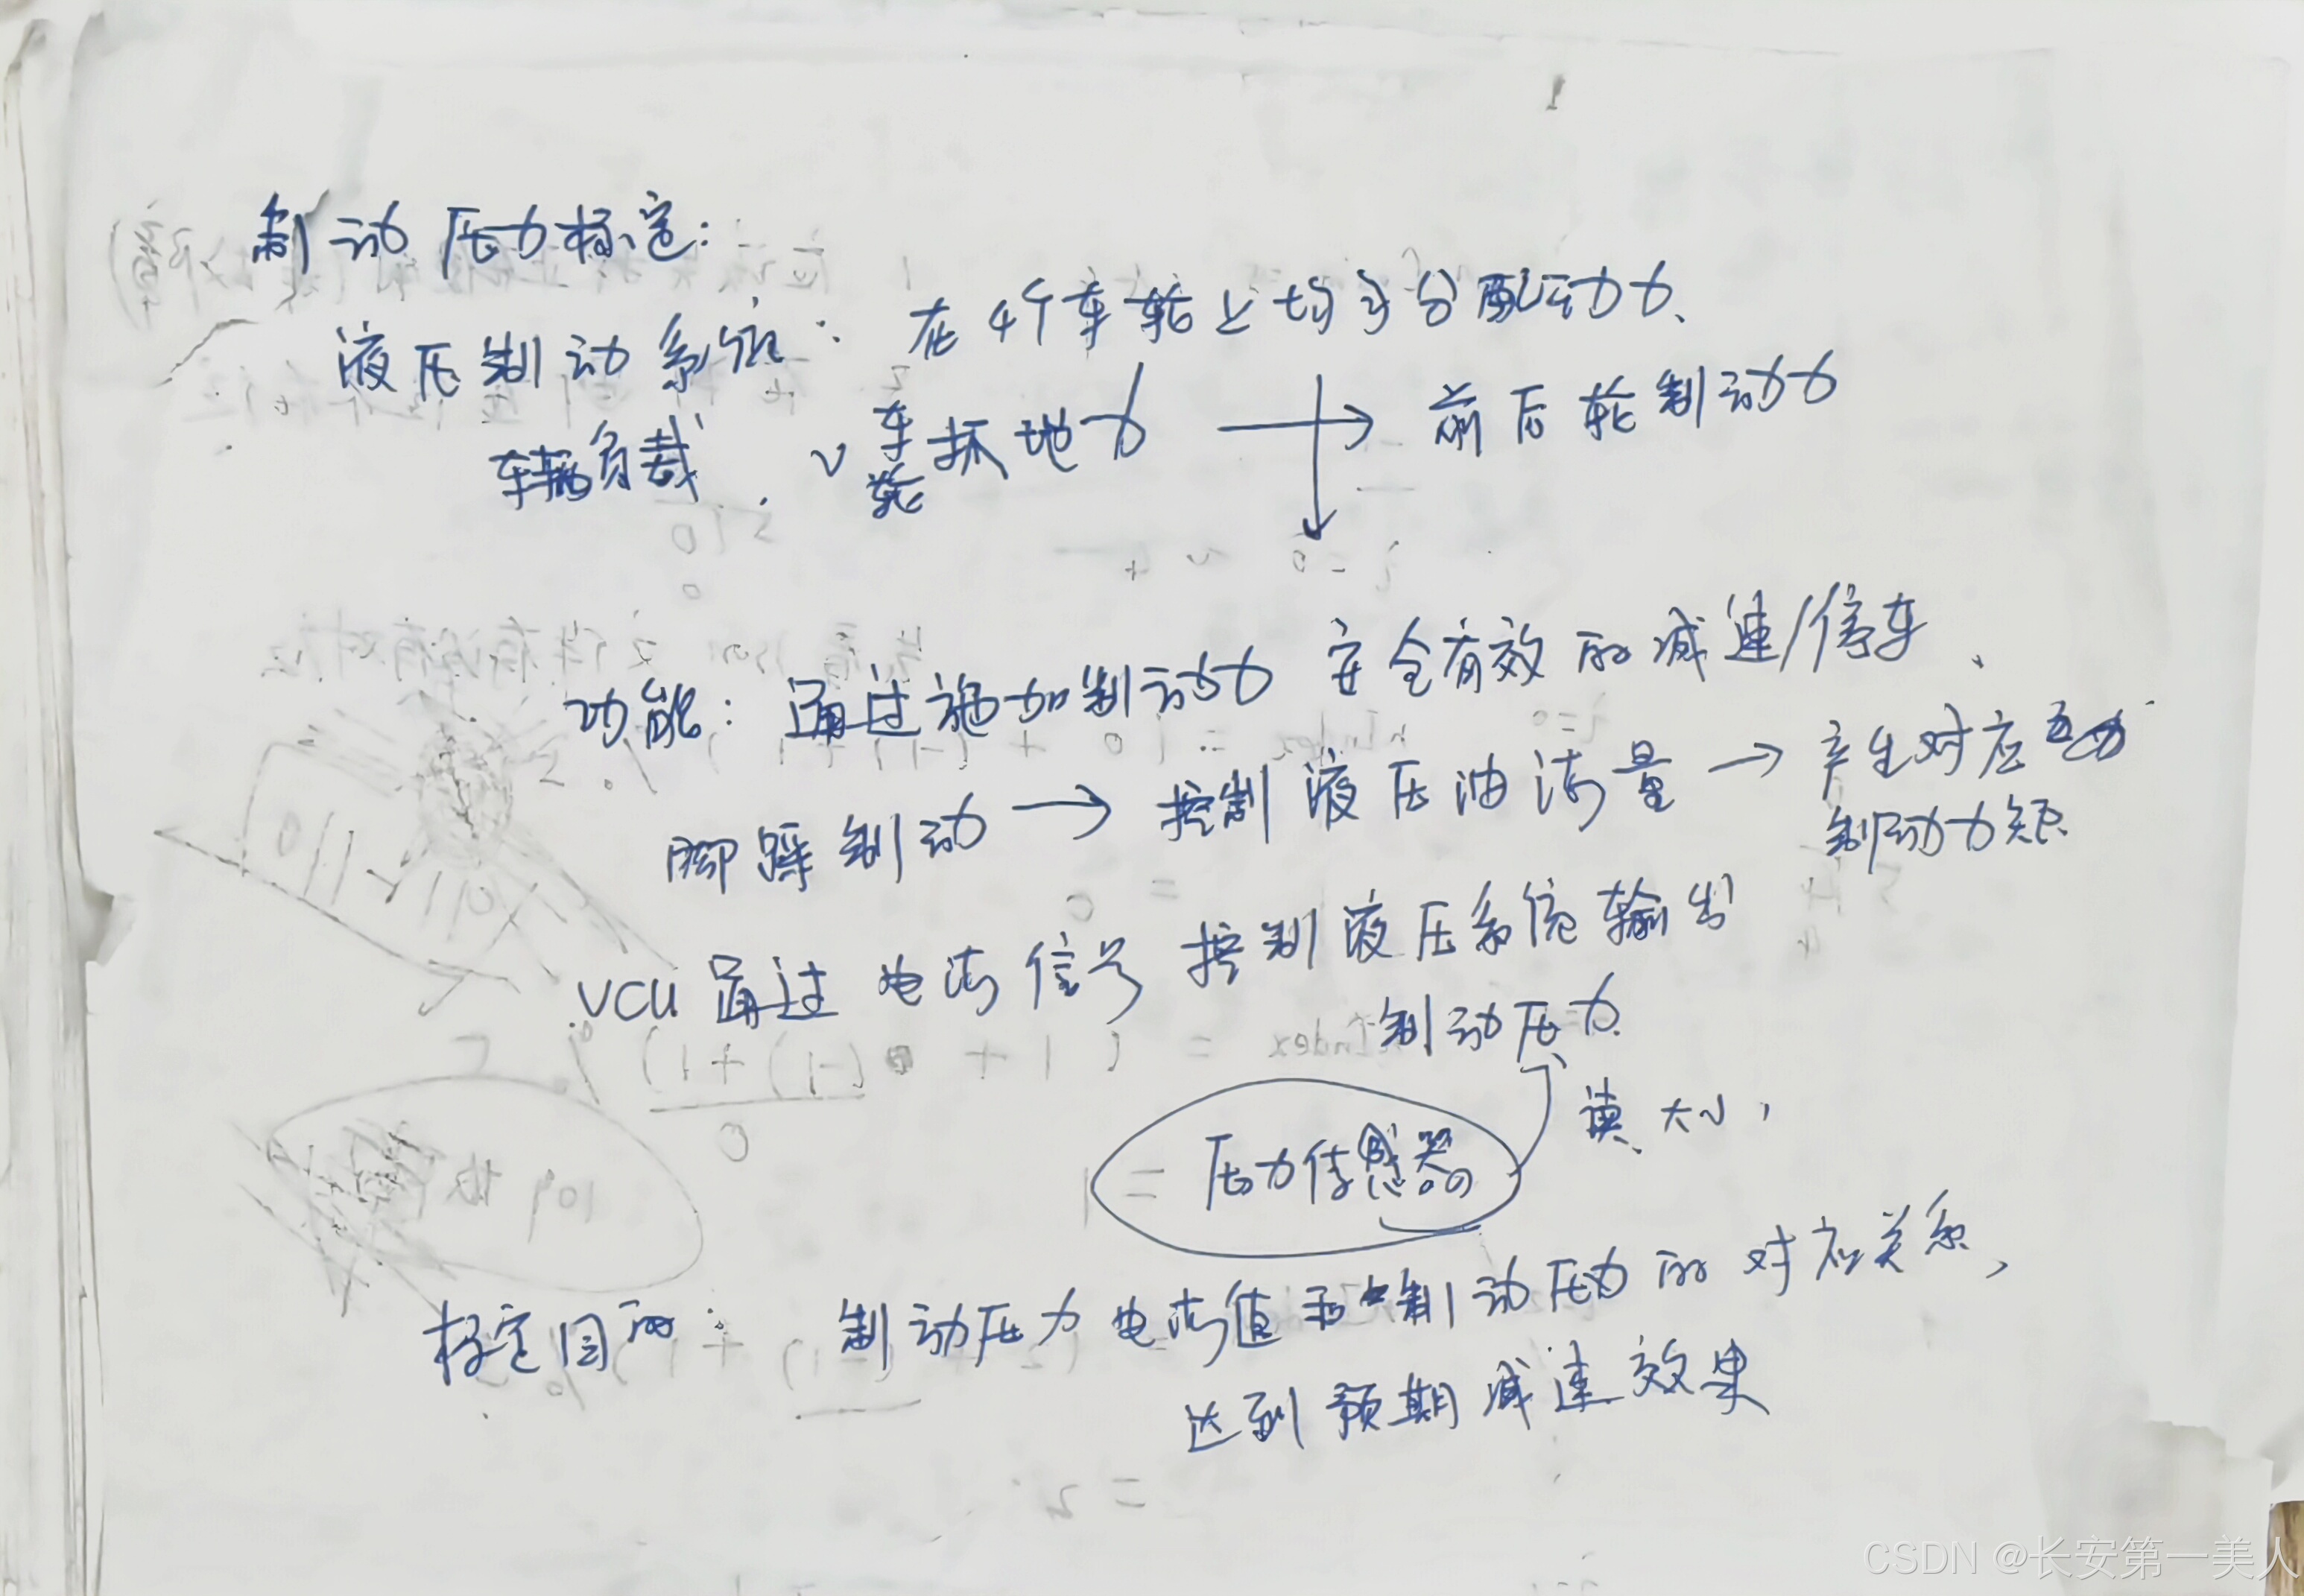 制动压力标定:
液压制动系统: 在4个车轮上均匀分配动力、
车辆负载、v车轮抓地力 → 前后轮制动力
功能: 通过施加制动力 安全有效的减速/停车、
脚踩制动 → 控制液压油流量 → 产生对应
制动力矩
VCU通过电流信号 控制液压系统输出
制动压力
读大小,
压力传感器
标定目的: 制动压力电流值和制动压力的对应关系,
达到预期减速效果
CSDN @长安第一美人